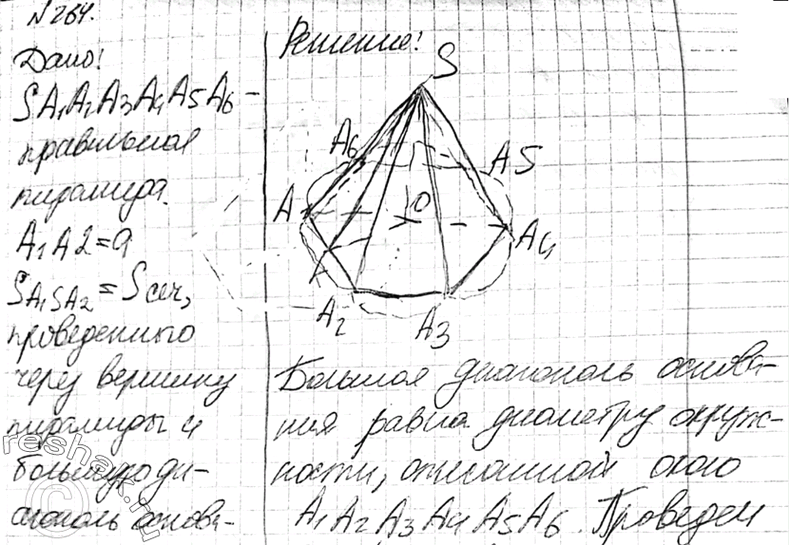 №264.
Дано:
SA1A2A3A4A5A6 -
правильная
пирамида.
A1A2=a
SA1SA2=Sсеч,
проведенного
через вершину
пирамиды и
большую ди-
агональ основа-
Решение:
S
A6
A5
A
O
A4
K
A2
A3
Большая диагональ основа-
ния равна диаметру окруж-
ности, описанной около
A1A2A3A4A5A6. Проведем
reshak.ru